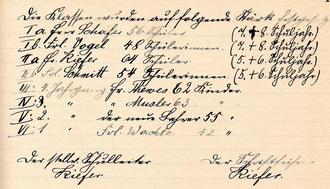 Die Klassen wurden auf folgende Stärke festgesetzt:
I a Herr Schäfer 56 Schüler (7. + 8. Schuljahr)
I b. Frl. Vogel 48 Schülerinnen. (7. + 8. Schuljahr)
II a Hr. Kiefer 64 Schüler (5. + 6. Schuljahr)
II b Frl. Schmitt 54 Schülerinnen (5. + 6. Schuljahr)
III: 4. Jahrgang Hr. Mewes 62 Kinder.
IV: 3. " " Musler 63 "
V: 2. " " der neue Lehrer 55 "
VI: 1 " Frl. 42 "
Der stellv. Schulleiter Der Schriftführer
Kiefer Kiefer.